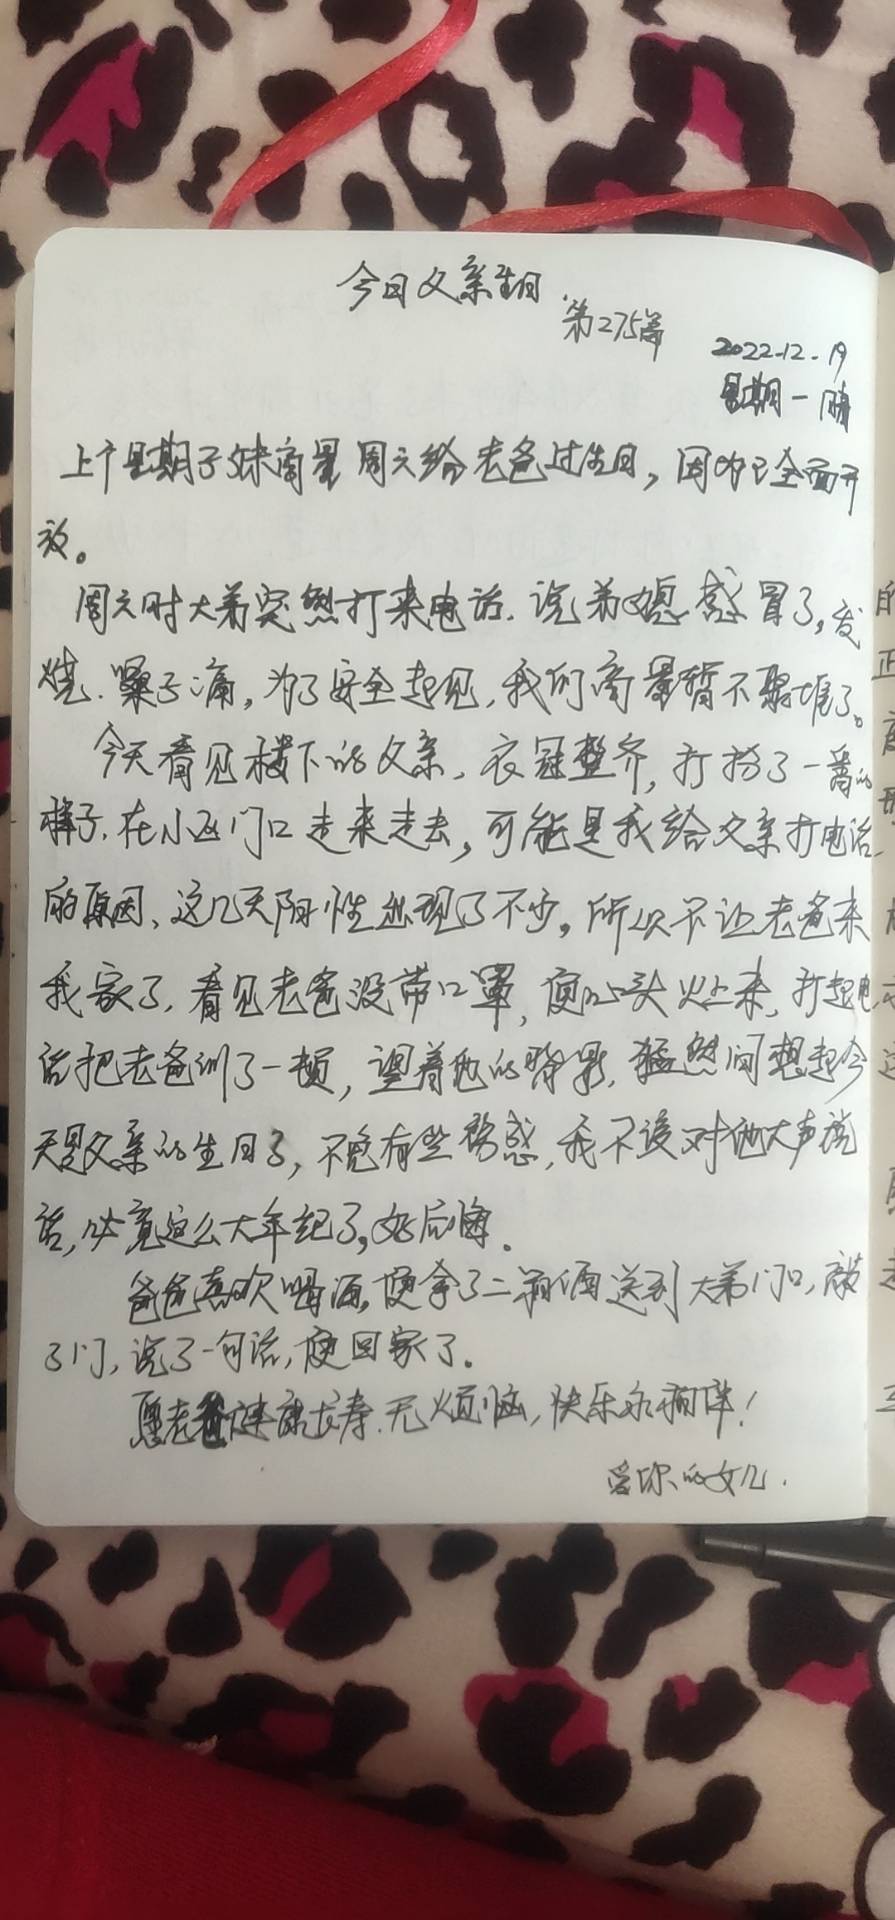 今日父亲生日
第275篇
2022.12.19
星期一 晴
上个星期子妹商量周六给老爸过生日，因为已全面开
放。
周六时大弟突然打来电话，说弟媳感冒了，发
烧、嗓子痛，为了安全起见，我们商量暂不聚堆了。
今天看见楼下的父亲，衣冠整齐，打扮了一番的
样子，在小区门口走来走去，可能是我给父亲打电话
的原因，这几天阳性出现了不少，所以不让老爸来
我家了，看见老爸没带口罩，便心头火上来，打起电
话把老爸训了一顿，望着他的背影，猛然间想起今
天是父亲的生日了，不免有些伤感，我不该对他大声说
话，毕竟这么大年纪了，好后悔。
爸爸喜欢喝酒，便拿了二箱酒送到大弟门口，敲
了门，说了一句话，便回家了。
愿老爸健康长寿，无烦恼，快乐永相伴！
爱你的女儿.
的
正